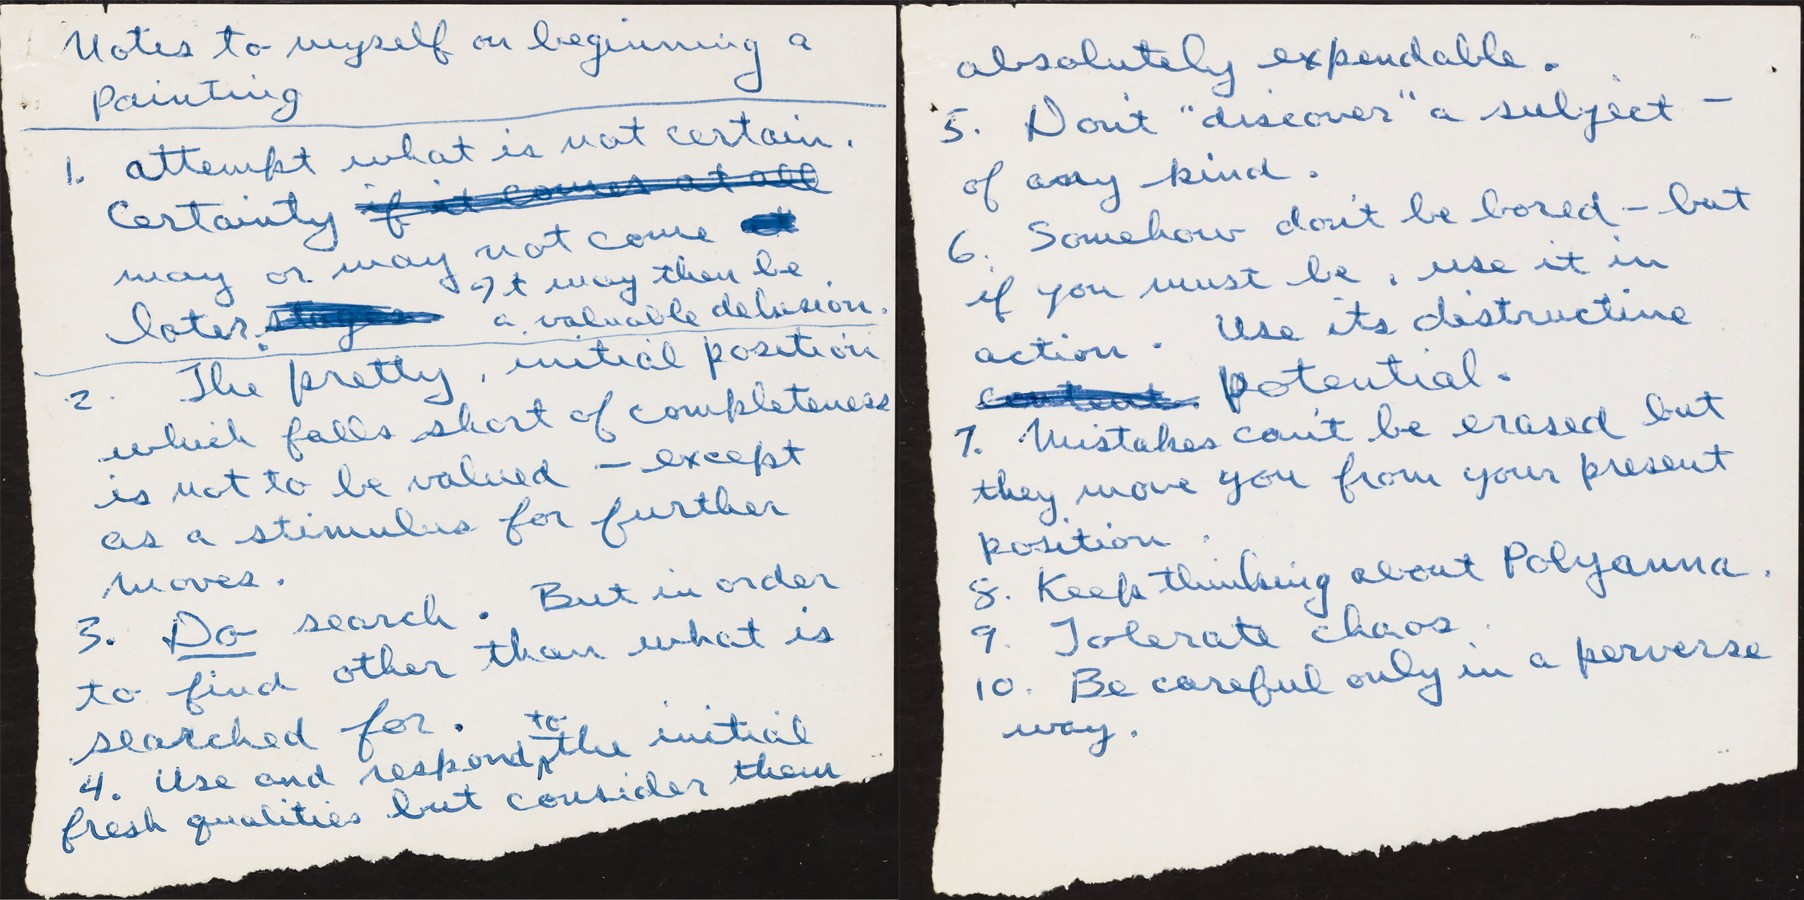 Notes to myself on beginning a
painting
1. attempt what is not certain.
Certainty if it comes at all
may or may not come
later. It may then be
a valuable delusion.
2. The pretty, initial position
which falls short of completeness
is not to be valued – except
as a stimulus for further
moves.
3. Do search. But in order
to find other than what is
searched for.
4. Use and respond to the initial
fresh qualities but consider them
absolutely expendable.
5. Don't "discover" a subject –
of any kind.
6. Somehow don't be bored – but
if you must be, use it in
action. Use its destructive
potential.
7. Mistakes can't be erased but
they move you from your present
position.
8. Keep thinking about Polyanna.
9. Tolerate chaos.
10. Be careful only in a perverse
way.